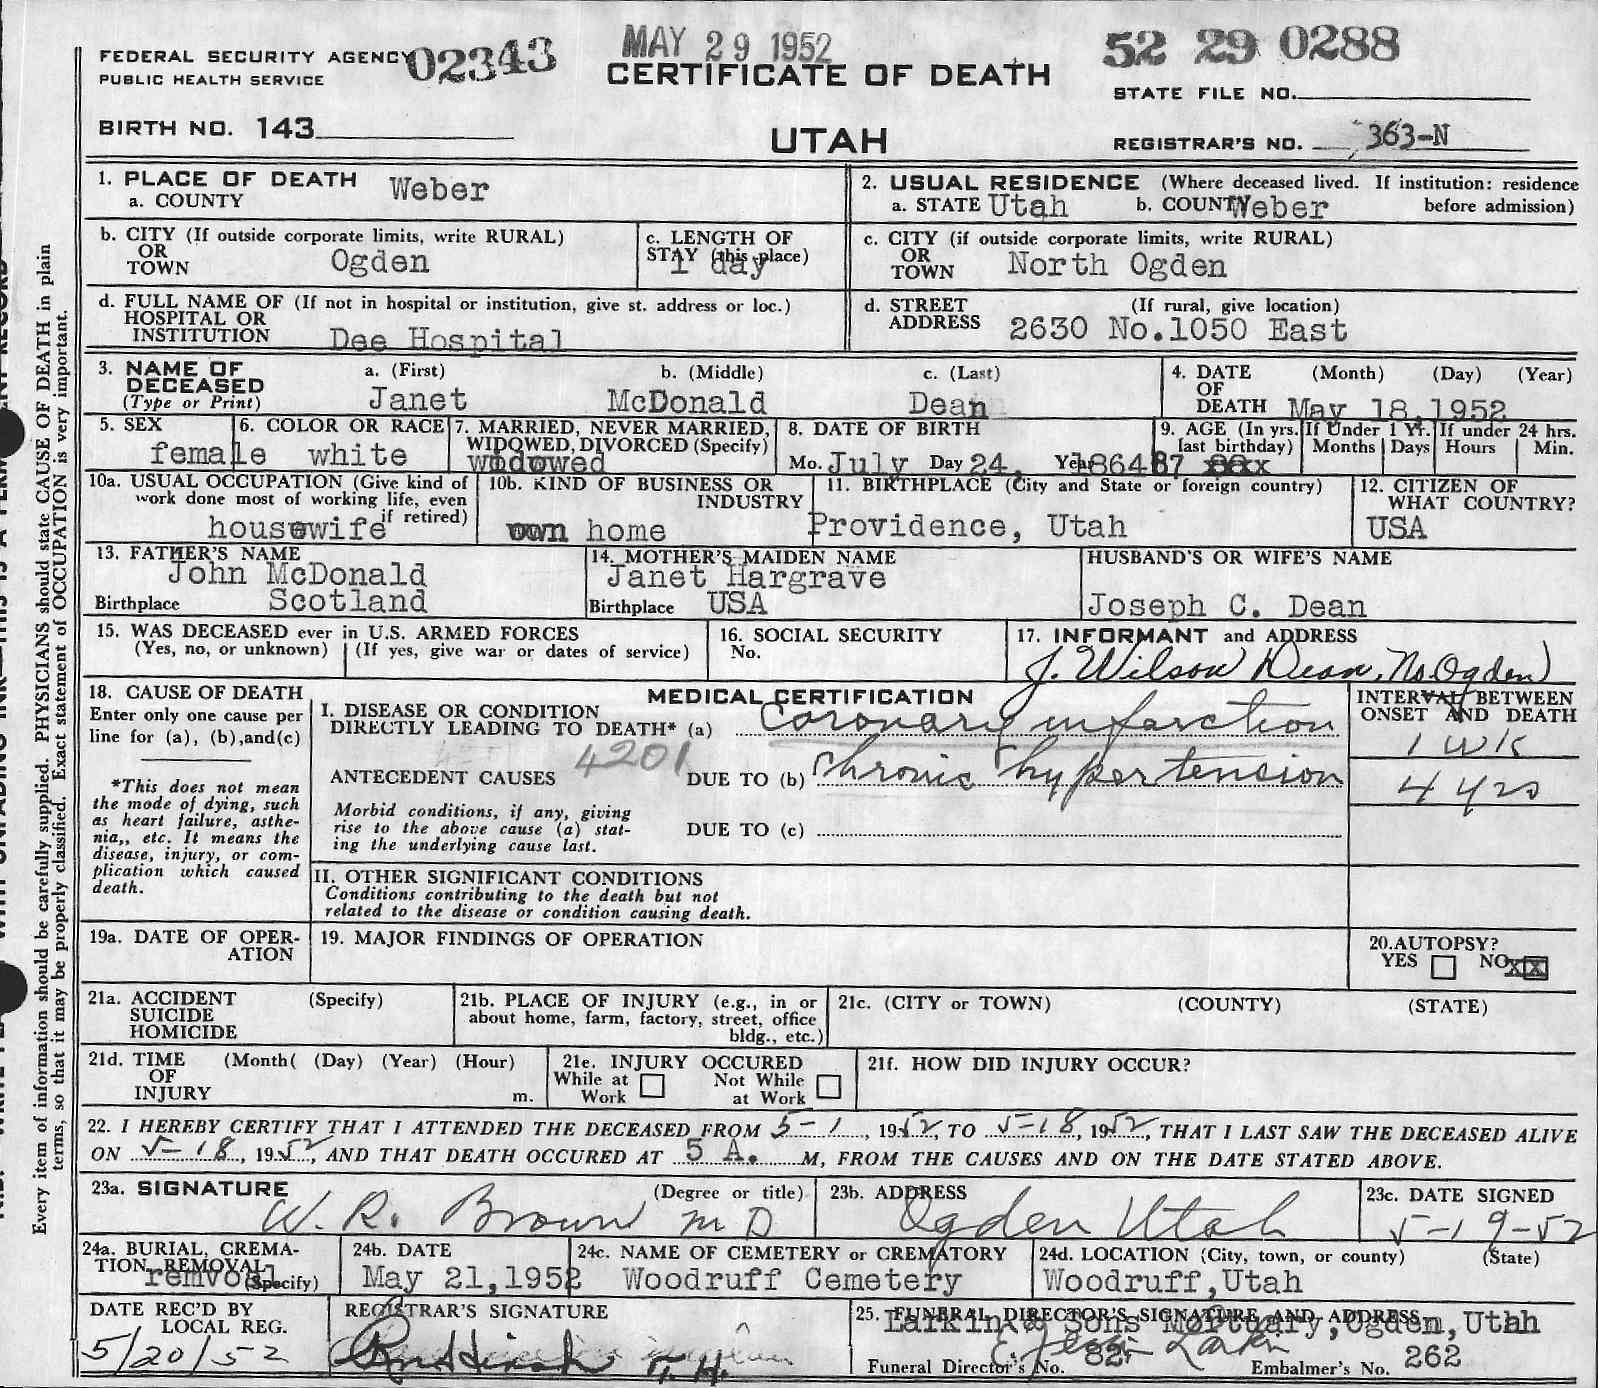 MAY 29 1952
FEDERAL SECURITY AGENCY 02343 CERTIFICATE OF DEATH 52 29 0288
PUBLIC HEALTH SERVICE STATE FILE NO.
BIRTH NO. 143 UTAH REGISTRAR'S NO. 363-N
1. PLACE OF DEATH Weber
a. COUNTY
2. USUAL RESIDENCE (Where deceased lived. If institution: residence
a. STATE Utah b. COUNTY Weber before admission)
b. CITY (If outside corporate limits, write RURAL)
OR Ogden
TOWN
c. LENGTH OF
STAY (this place)
1 day
c. CITY (if outside corporate limits, write RURAL)
OR
TOWN North Ogden
d. FULL NAME OF (If not in hospital or institution, give st. address or loc.)
HOSPITAL OR
INSTITUTION Dee Hospital
d. STREET (If rural, give location)
ADDRESS 2630 No.1050 East
3. NAME OF a. (First) b. (Middle) c. (Last)
DECEASED
(Type or Print) Janet McDonald Dean
4. DATE (Month) (Day) (Year)
OF
DEATH May 18,1952
5. SEX
female
6. COLOR OR RACE
white
7. MARRIED, NEVER MARRIED,
WIDOWED, DIVORCED (Specify)
widowed
8. DATE OF BIRTH
Mo. July Day 24, Year 1864
9. AGE (In yrs.
last birthday)
87
If Under 1 Yr.
Months Days
If under 24 hrs.
Hours Min.
10a. USUAL OCCUPATION (Give kind of
work done most of working life, even
if retired)
housewife
10b. KIND OF BUSINESS OR
INDUSTRY
own home
11. BIRTHPLACE (City and State or foreign country)
Providence, Utah
12. CITIZEN OF
WHAT COUNTRY?
USA
13. FATHER'S NAME
John McDonald
Birthplace Scotland
14. MOTHER'S MAIDEN NAME
Janet Hargrave
Birthplace USA
HUSBAND'S OR WIFE'S NAME
Joseph C. Dean
15. WAS DECEASED ever in U.S. ARMED FORCES
(Yes, no, or unknown) (If yes, give war or dates of service)
16. SOCIAL SECURITY
No.
17. INFORMANT and ADDRESS
J. Wilson Dean, No. Ogden
18. CAUSE OF DEATH
Enter only one cause per
line for (a), (b),and(c)
*This does not mean
the mode of dying, such
as heart failure, asthe-
nia,, etc. It means the
disease, injury, or com-
plication which caused
death.
MEDICAL CERTIFICATION
I. DISEASE OR CONDITION
DIRECTLY LEADING TO DEATH* (a) Coronary infarction
4201
ANTECEDENT CAUSES DUE TO (b) Chronic hypertension
Morbid conditions, if any, giving
rise to the above cause (a) stat- DUE TO (c)
ing the underlying cause last.
II. OTHER SIGNIFICANT CONDITIONS
Conditions contributing to the death but not
related to the disease or condition causing death.
INTERVAL BETWEEN
ONSET AND DEATH
1 wk
4 yrs
19a. DATE OF OPER-
ATION
19. MAJOR FINDINGS OF OPERATION
20.AUTOPSY?
YES NO XX
21a. ACCIDENT (Specify)
SUICIDE
HOMICIDE
21b. PLACE OF INJURY (e.g., in or
about home, farm, factory, street, office
bldg., etc.)
21c. (CITY or TOWN) (COUNTY) (STATE)
21d. TIME (Month( (Day) (Year) (Hour)
OF
INJURY m.
21e. INJURY OCCURED
While at Not While
Work at Work
21f. HOW DID INJURY OCCUR?
22. I HEREBY CERTIFY THAT I ATTENDED THE DECEASED FROM 5-1, 1952, TO 5-18, 1952, THAT I LAST SAW THE DECEASED ALIVE
ON 5-18, 1952, AND THAT DEATH OCCURED AT 5 A. M, FROM THE CAUSES AND ON THE DATE STATED ABOVE.
23a. SIGNATURE (Degree or title)
W. R. Brown MD
23b. ADDRESS
Ogden Utah
23c. DATE SIGNED
5-19-52
24a. BURIAL, CREMA-
TION, REMOVAL
remvoal (Specify)
24b. DATE
May 21,1952
24c. NAME OF CEMETERY or CREMATORY
Woodruff Cemetery
24d. LOCATION (City, town, or county) (State)
Woodruff,Utah
DATE REC'D BY
LOCAL REG.
5/20/52
REGISTRAR'S SIGNATURE
25. FUNERAL DIRECTOR'S SIGNATURE AND ADDRESS
Larkin & Sons Mortuary,Ogden,Utah
Larkin
Funeral Director's No. 82 Embalmer's No. 262
Every item of information should be carefully supplied. PHYSICIANS should state CAUSE OF DEATH in plain
terms, so that it may be properly classified. Exact statement of OCCUPATION is very important.